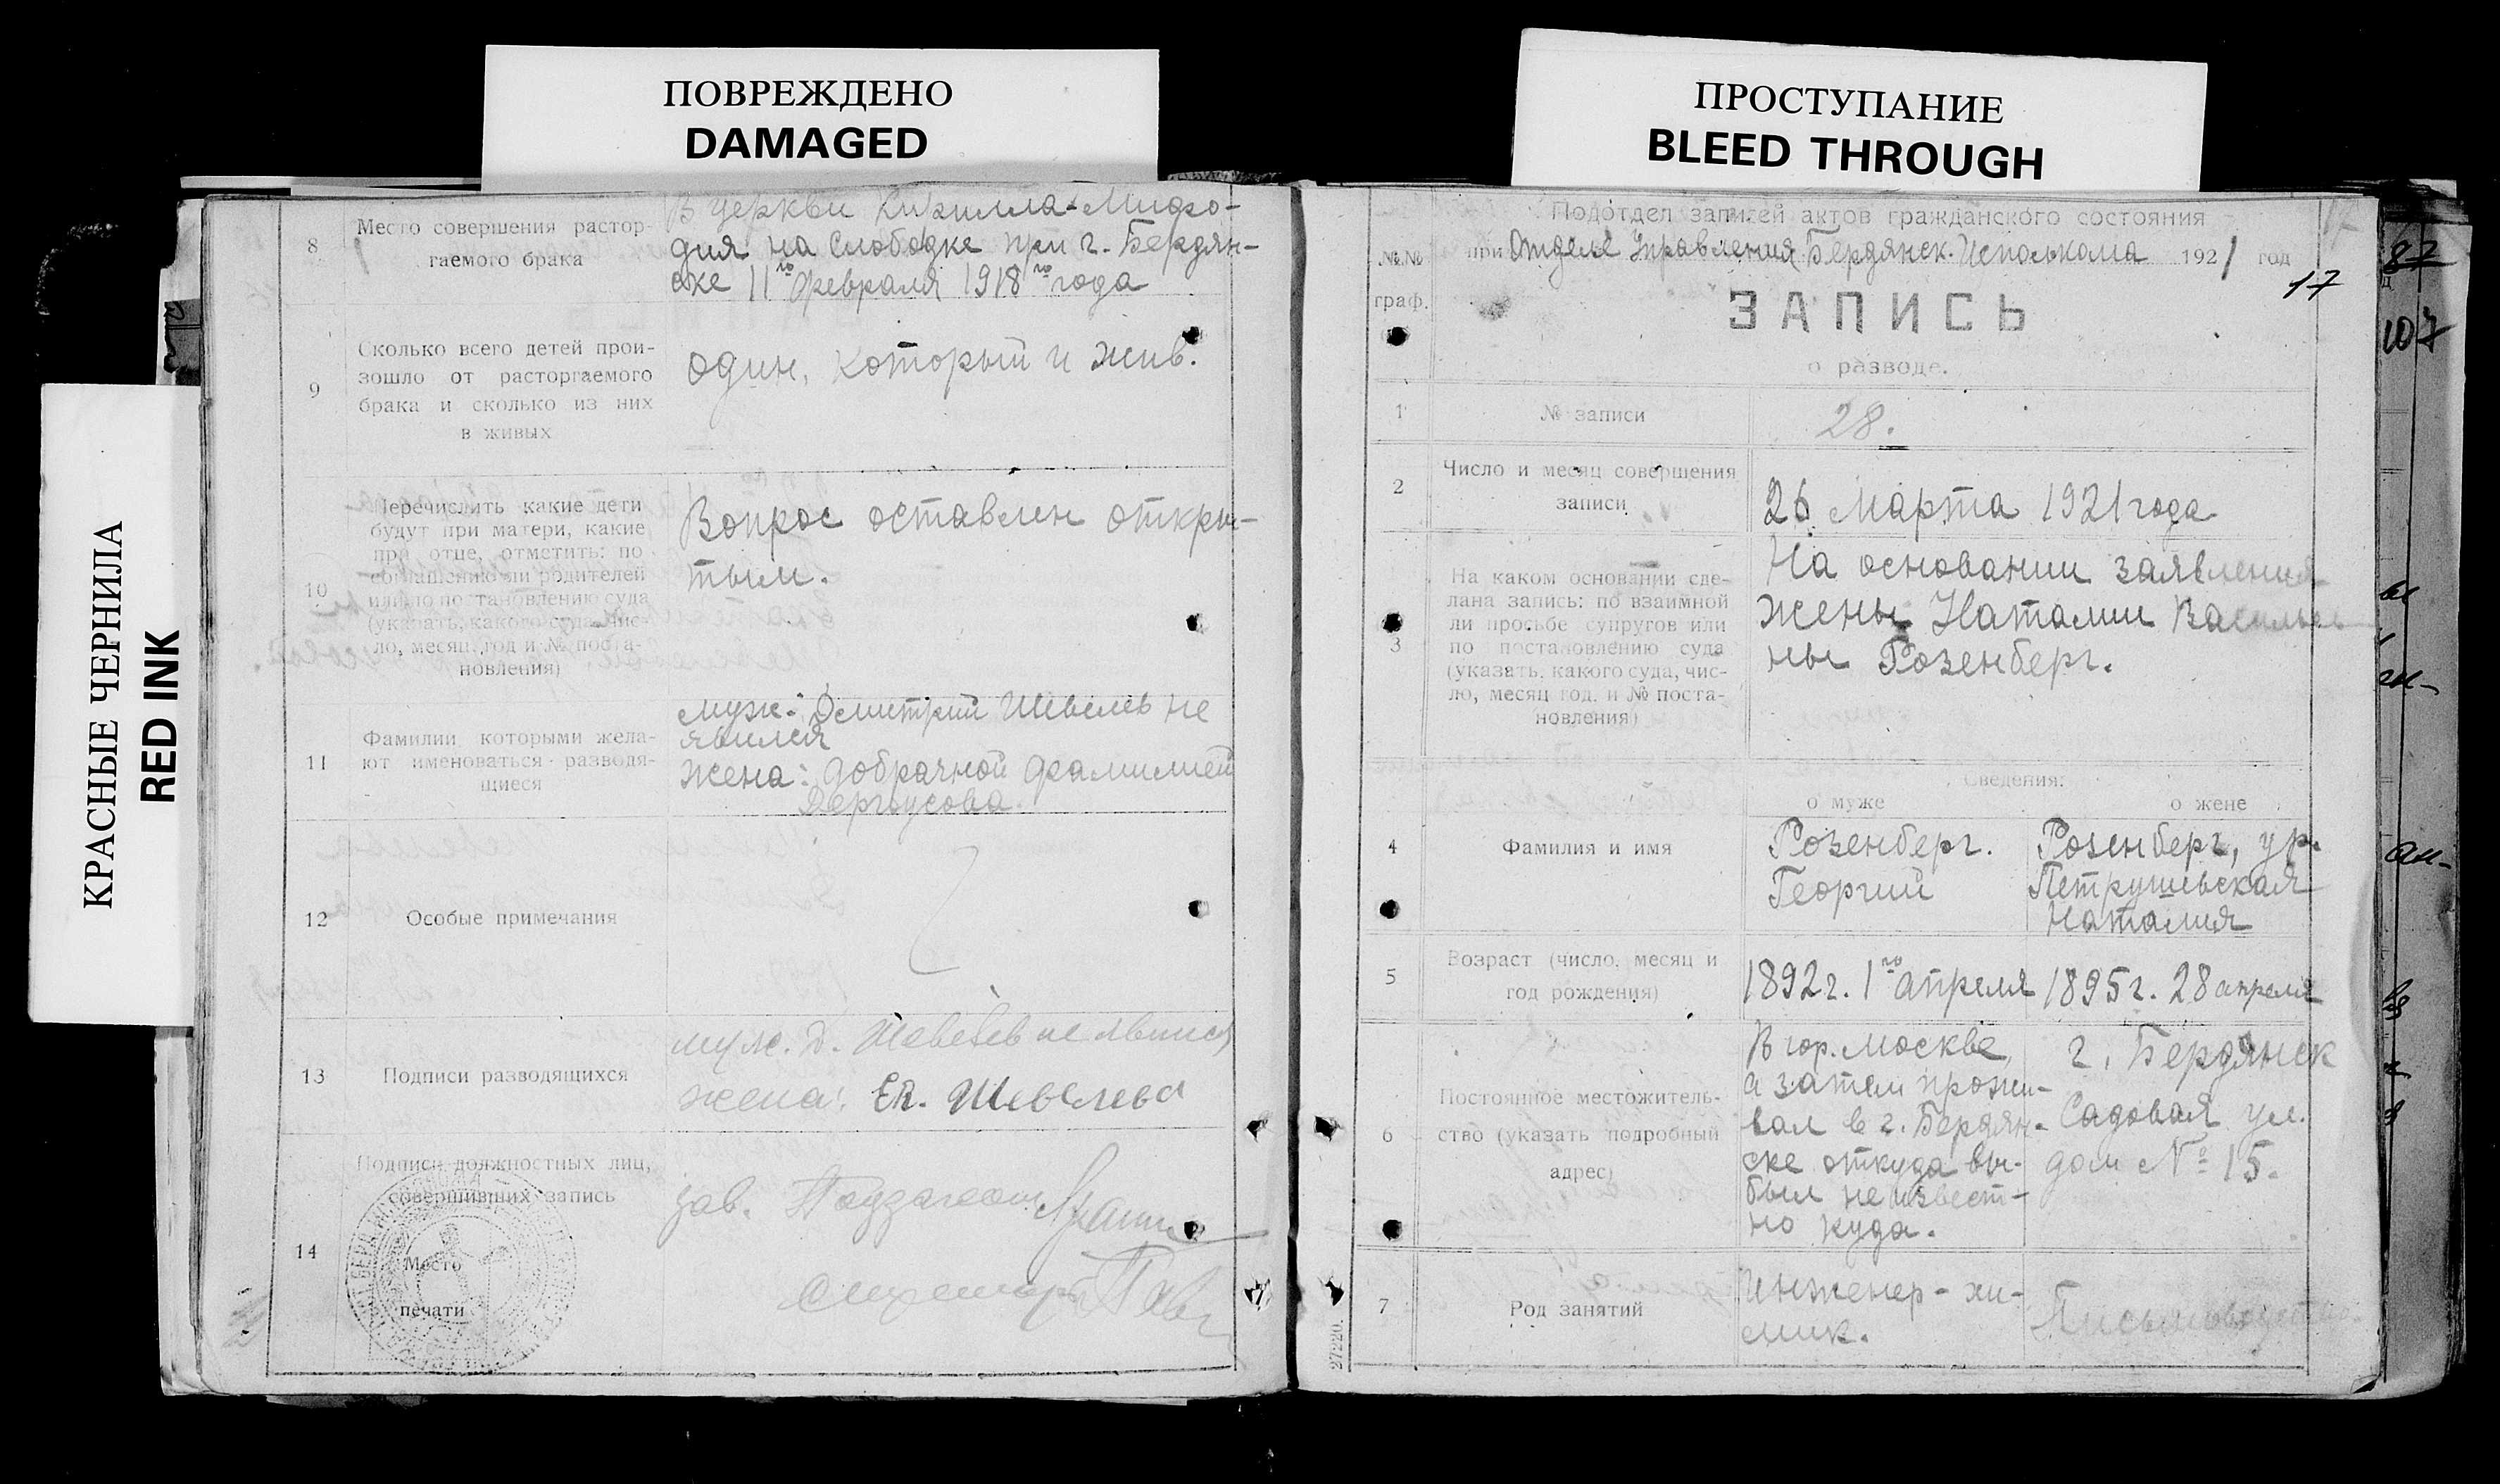 ПОВРЕЖДЕНО
DAMAGED
ПРОСТУПАНИЕ
BLEED THROUGH
КРАСНЫЕ ЧЕРНИЛА
RED INK
8
Место совершения растор-
гаемого брака
В церкви Кирилла-Мифо-
дия на Слободке при г. Бердян-
ске 11го февраля 1918го года
9
Сколько всего детей прои-
зошло от расторгаемого
брака и сколько из них
в живых
один, который и жив.
10
Перечислить какие дети
будут при матери, какие
при отце, отметить: по
соглашению ли родителей
или по постановлению суда
(указать, какого суда, чис-
ло, месяц, год и № поста-
новления)
Вопрос оставлен откры-
тым.
11
Фамилии которыми жела-
ют именоваться разводя-
щиеся
муж: Димитрий Шевелев не
явился
жена: добрачной фамилией
12
Особые примечания
13
Подписи разводящихся
муж. Д. Шевелев не явился
жена: Ек. Шевелева
14
Подписи должностных лиц,
совершивших запись
Место
печати
зав.
Подотдел записей актов гражданского состояния
№№
граф.
при Отделе Управления Бердянск. Исполкома 1921 год
17
ЗАПИСЬ
о разводе.
1
№ записи
28.
2
Число и месяц совершения
записи
26 Марта 1921 года
3
На каком основании сде-
лана запись: по взаимной
ли просьбе супругов или
по постановлению суда
(указать, какого суда, чис-
ло, месяц год, и № поста-
новления)
На основании заявления
жены Наталии Василье
ны Розенберг.
Сведения:
о муже
о жене
4
Фамилия и имя
Розенберг.
Георгий
Розенберг, ур.
Петрушевская
Наталия
5
Возраст (число, месяц и
год рождения)
1892 г. 1го апреля
1895 г. 28 апреля
6
Постоянное местожитель-
ство (указать подробный
адрес)
В гор. Москве,
а затем прожи-
вал в г. Бердян-
ске откуда вы-
был неизвест-
но куда.
г. Бердянск
Садовая ул.
дом № 15.
7
Род занятий
Инженер-хи-
мик.
27220.
87
107